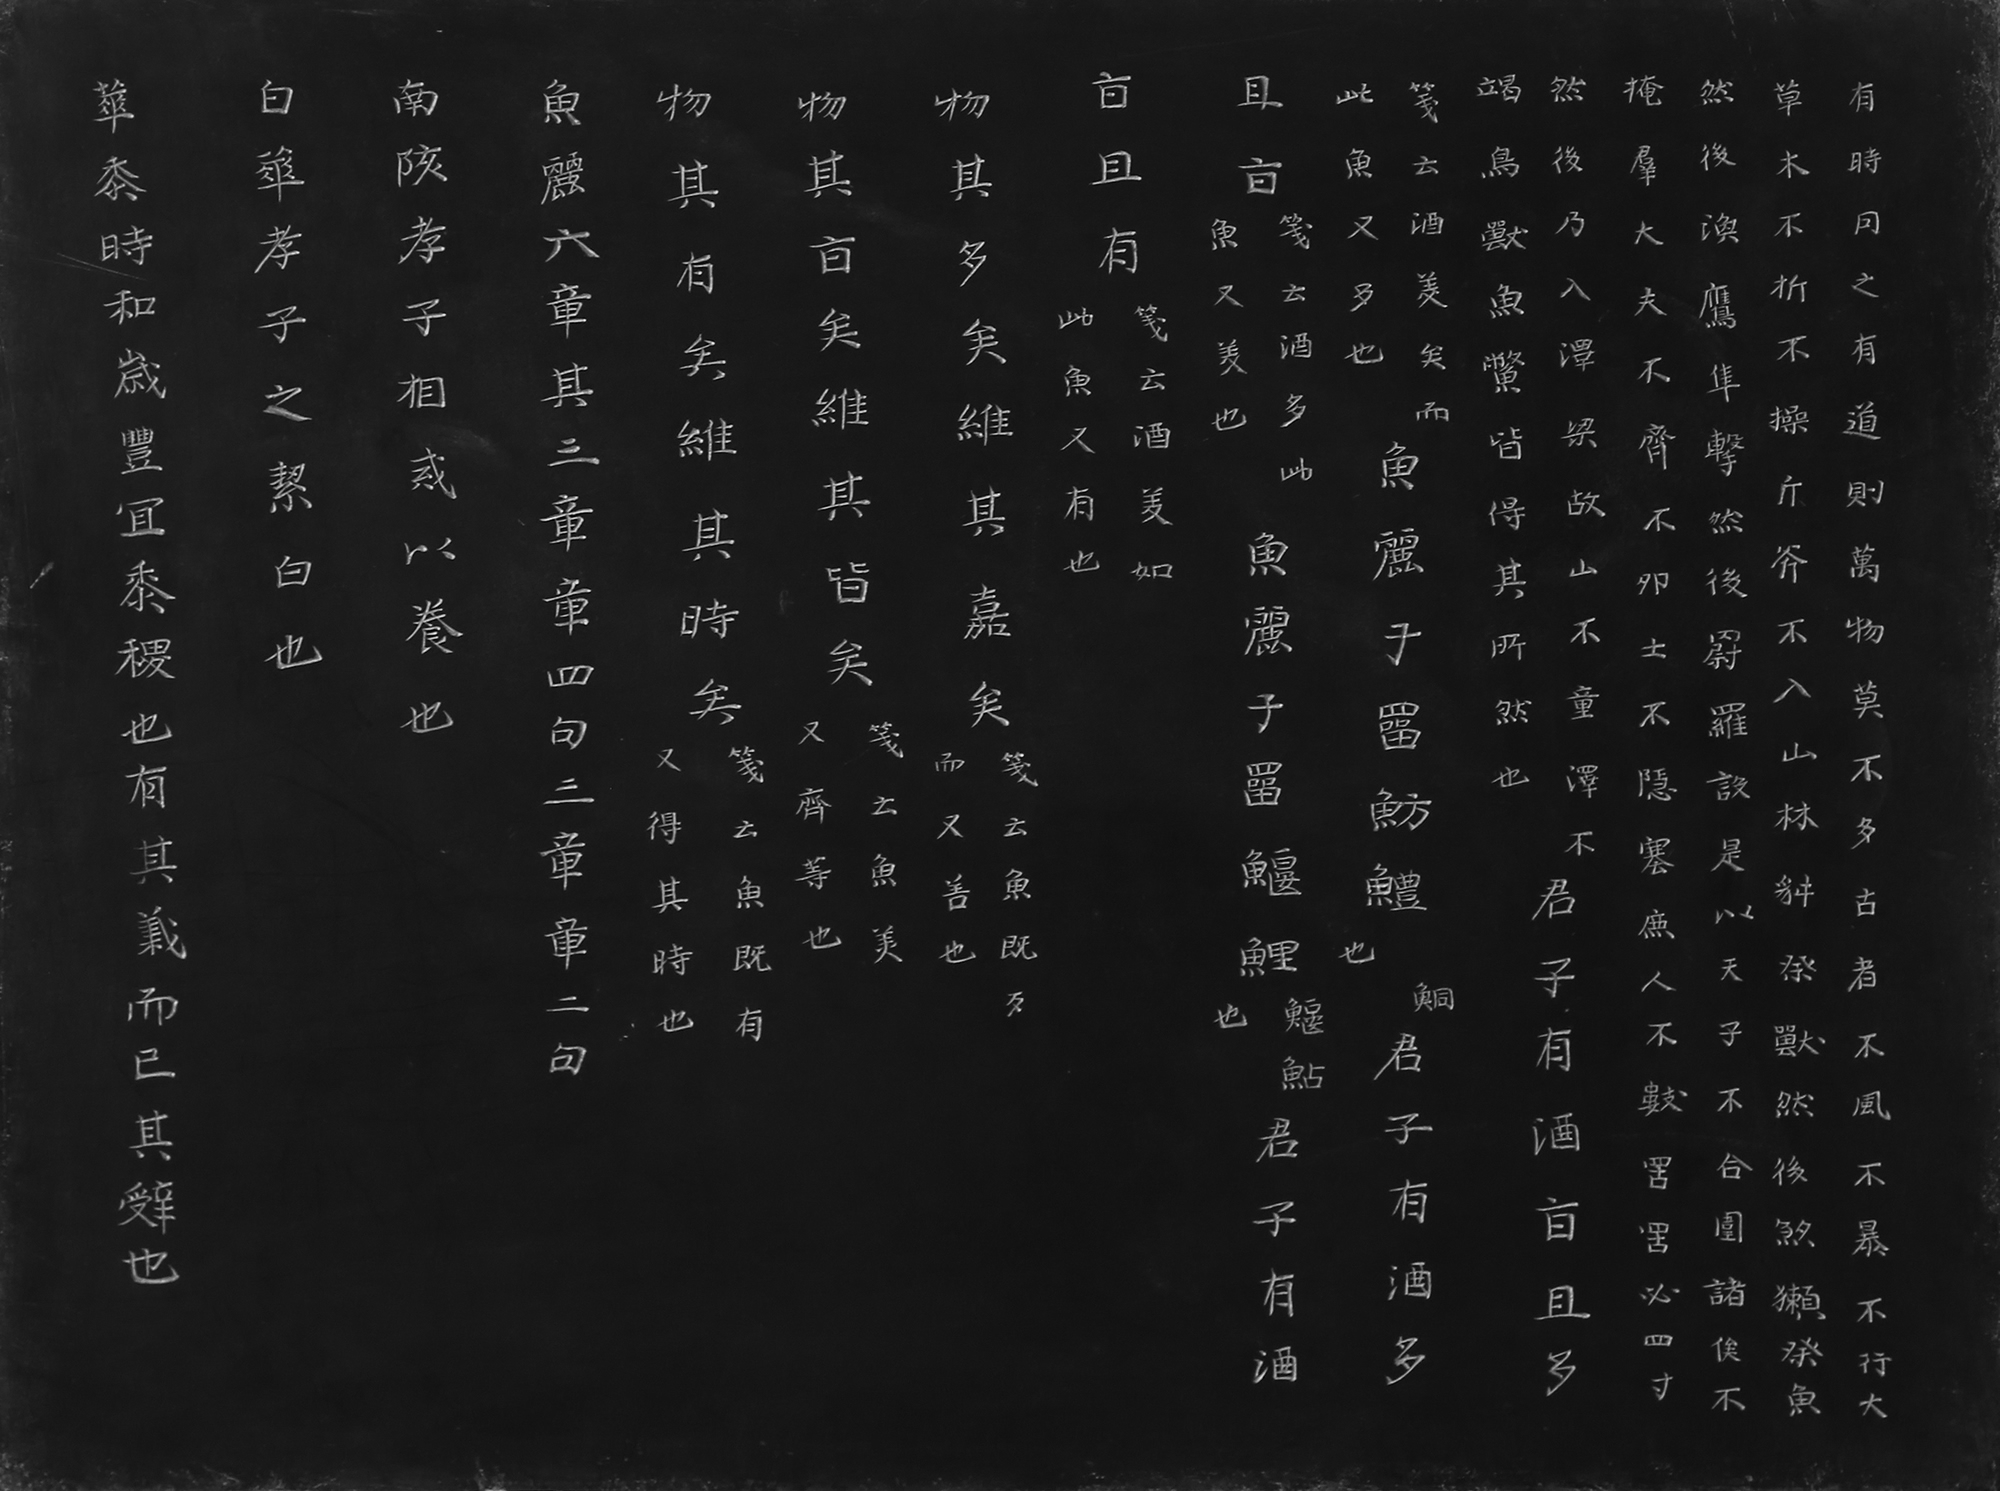 有時用之有道則萬物莫不多古者不風不暴不行火
草木不折不操斤斧不入山林豺祭獸然後煞獺祭魚
然後漁鷹隼擊然後罻羅設是以天子不合圍諸侯不
掩羣大夫不麛不卵士不隱塞庶人不數罟罟必四寸
然後乃入澤梁故山不童澤不
竭鳥獸魚鱉皆得其所然也
君子有酒旨且多
箋云酒美矣而
此魚又多也
魚麗于罶魴鱧
鮦
也
君子有酒多
且旨
箋云酒多此
魚又美也
魚麗于罶鰋鯉
鰋鮎
也
君子有酒
旨且有
箋云酒美如
此魚又有也
物其多矣維其嘉矣
箋云魚既多
而又善也
物其旨矣維其皆矣
箋云魚美
又齊等也
物其有矣維其時矣
箋云魚既有
又得其時也
魚麗六章其三章章四句三章章二句
南陔孝子相戒以養也
白華孝子之絜白也
華黍時和歲豐宜黍稷也有其義而已其辤也